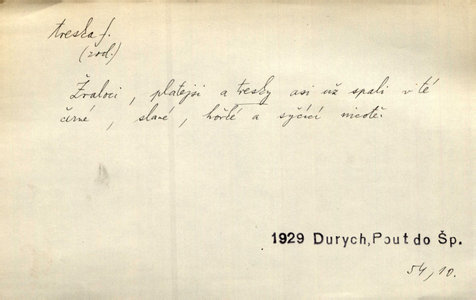 treska f.
(zool.)
Žraloci, platejsi a tresky asi už spali v té
čirné, slané, hořké a syčící nicotě.
1929 Durych, Pout do Šp.
54, 10.